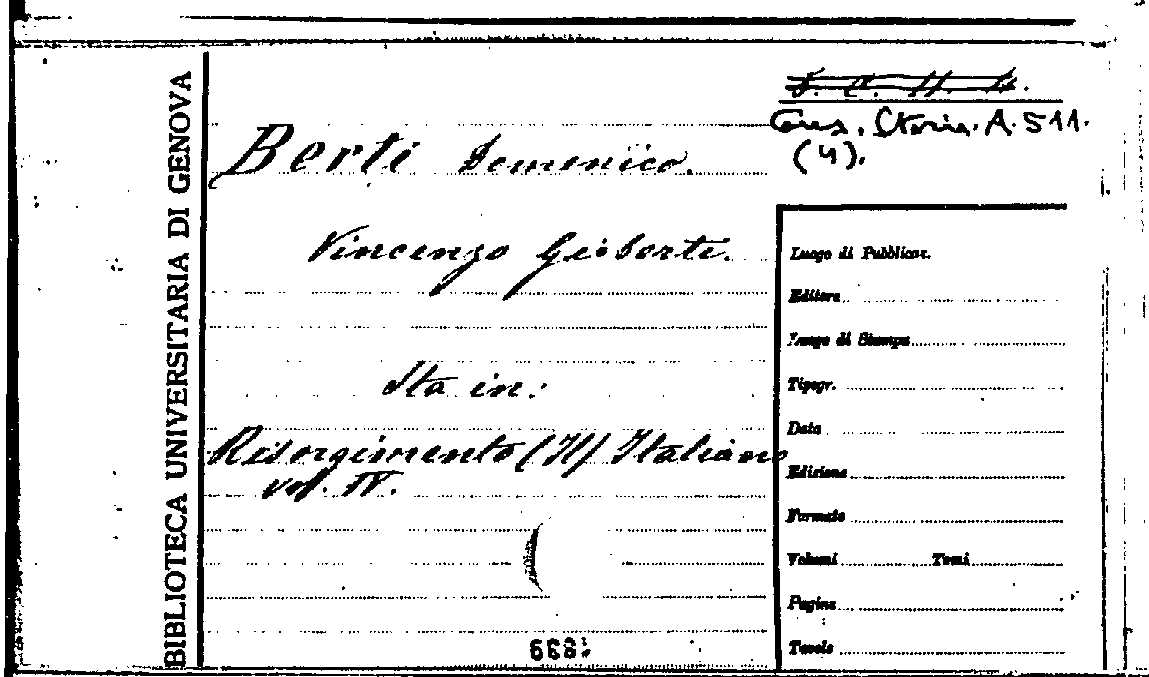 BIBLIOTECA UNIVERSITARIA DI GENOVA
Cons. Storia. A. 511.
(4).
Berti Domenico.
Vincenzo Gioberti.
Sta in:
Risorgimento (Il) Italiano
vol. IV.
Luogo di Pubblicaz.
Editore
Luogo di Stampa
Tipogr.
Data
Edizione
Formato
Volumi Tomi
Pagine
Tavole